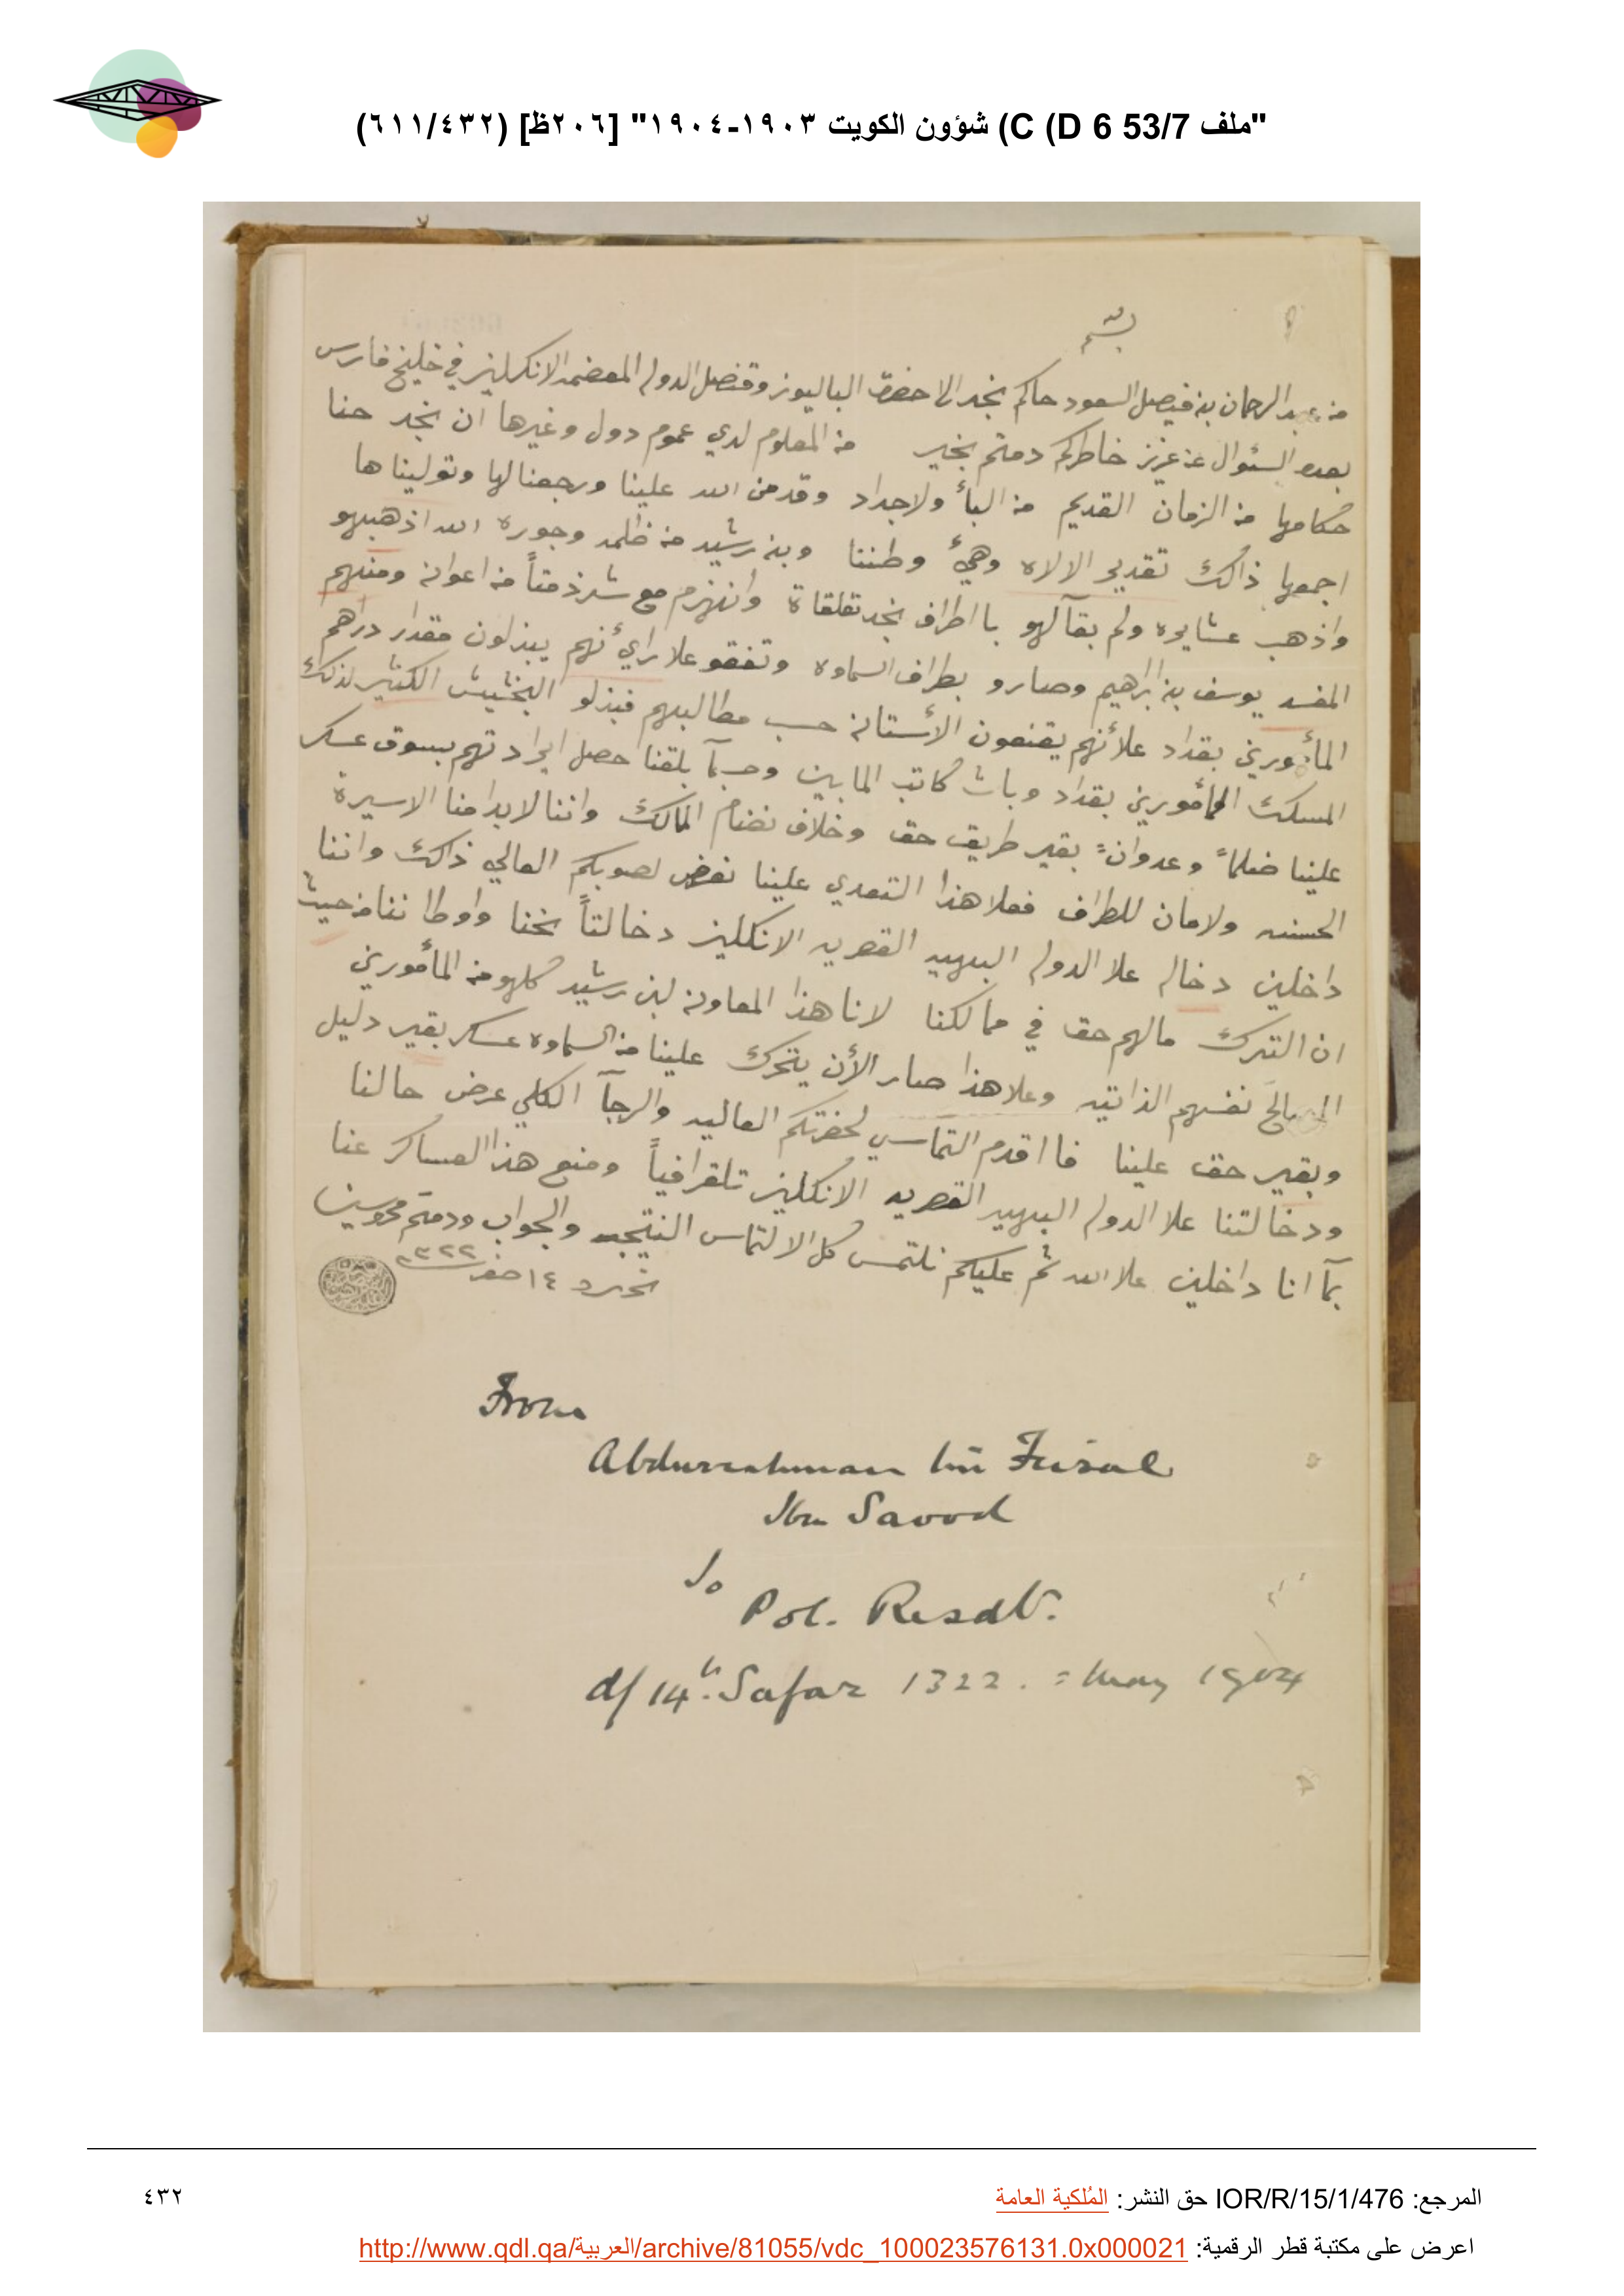 "ملف 53/7 C (D 6) شؤون الكويت ١٩٠٣-١٩٠٤" [٢٠٦ظ] (٦١١/٤٣٢)
بسم
من عبدالرحمان بن فيصل السعود حاكم نجد الا حضرة الباليوز وقنصل الدوله المعضمه الانكليز في خليج فارس
بعده السئوال عن عزيز خاطركم دمتم بخير من المعلوم لدي عموم دول وغيرها ان نجد حنا
حكامها من الزمان القديم من البأ ولاجداد وقد من الله علينا ورجعنا لها وتولينا ها
اجمعها ذالك تقدير الالاه وهئ وطننا وبن رشيد من ظلمه وجوره الله اذهبهو
واذهب عشايره ولم بقآ لهو با اطراف نجد تقلقاة وانهزم مع شرذمتاً من اعوانه ومنهم
المفسد يوسف بن ابراهيم وصارو بطراف السماوه وتفقو علا رائ نهم يبذلون مقدار دراهم
المأمورين بقداد علا نهم يقنعون الأستانه حسب مطاليبهم فبذلو البخشيش الكثير لذلك
المسلك المأمورين بقداد وباش كاتب المابين وحسبمآ بلقنا حصل ايرادتهم بسوق عسكر
علينا ضلماً وعدوانً بقير طريق حق وخلاف نضام المالك واننا لابدا منا الاسيرة
الحسنه ولامان للطراف فعلا هذا التعدي علينا نعرض لصوبكم العالي ذالك واننا
داخلين دخاله علا الدوله البهيه القصريه الانكليز دخالتاً نحنا واوطا ننا من حيث
ان الترك مالهم حق في ممالكنا لانا هذا المعاونه لبن رشيد كلهو من المأمورين
المصالح نفسهم الذاتيه وعلا هذا صار الأن يتحرك علينا من السماوه عسكر بقير دليل
وبقير حق علينا فا اقدم التماسي لحضرتكم العاليه والرجآ الكلي عرض حالنا
ودخالتنا علا الدوله البهيه القصريه الانكليز تلقرافياً ومنع هذا العساكر عنا
بمآ انا داخلين علا الله ثم عليكم نلتمس كل الالتماس النتيجه والجواب ودمتم محروسين
تحرر د ١٤ صفر ١٣٢٢
From
Abdurrahman bin Feisal
Ibn Saood
To
Pol. Resdt.
d/ 14th Safar 1322. = May 1904
المرجع: IOR/R/15/1/476 حق النشر: المُلكية العامة
٤٣٢
اعرض على مكتبة قطر الرقمية: http://www.qdl.qa/العربية/archive/81055/vdc_100023576131.0x000021